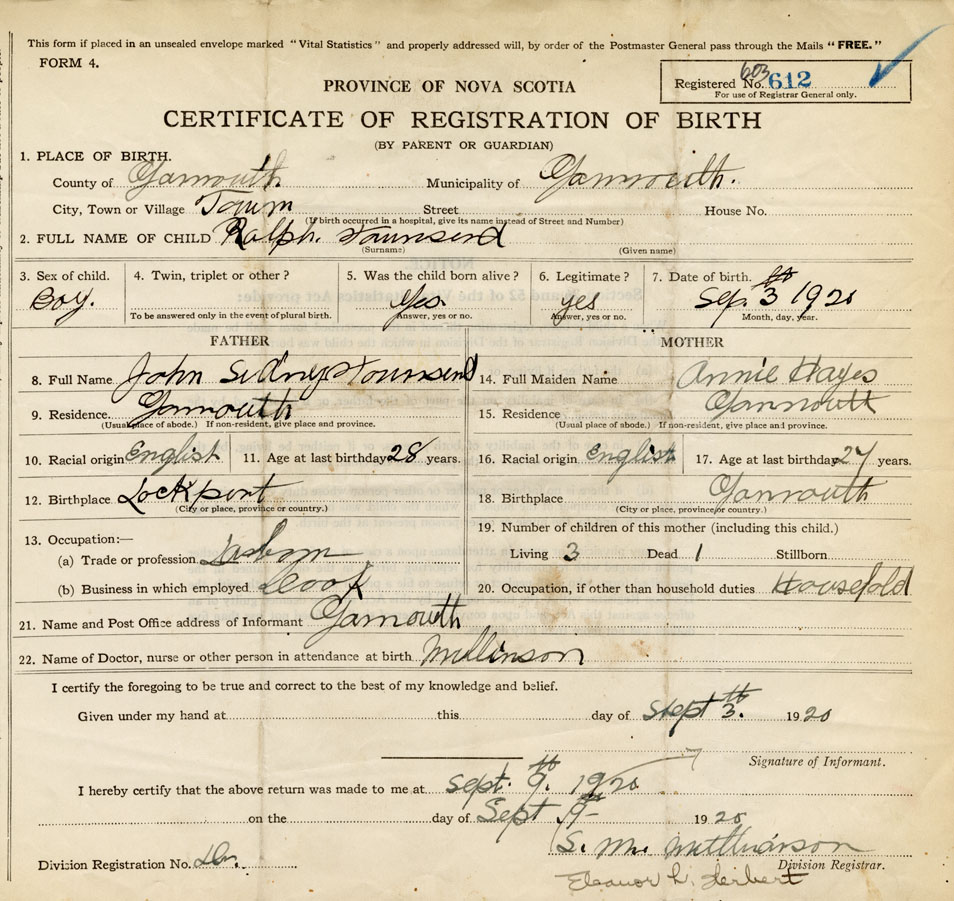 This form if placed in an unsealed envelope marked "Vital Statistics" and properly addressed will, by order of the Postmaster General pass through the Mails "FREE."
FORM 4.
603
Registered No. 612
For use of Registrar General only.
PROVINCE OF NOVA SCOTIA
CERTIFICATE OF REGISTRATION OF BIRTH
(BY PARENT OR GUARDIAN)
1. PLACE OF BIRTH.
County of Yarmouth Municipality of Yarmouth.
City, Town or Village Town Street House No.
(If birth occurred in a hospital, give its name instead of Street and Number)
2. FULL NAME OF CHILD Ralph. Townsend
(Surname) (Given name)
3. Sex of child. 4. Twin, triplet or other? 5. Was the child born alive? 6. Legitimate? 7. Date of birth.
Boy. Yes. yes Sep. 3th 1920
To be answered only in the event of plural birth. Answer, yes or no. Answer, yes or no. Month, day, year.
FATHER MOTHER
8. Full Name John Sidney Townsend 14. Full Maiden Name Annie Hayes
9. Residence. Yarmouth 15. Residence Yarmouth
(Usual place of abode.) If non-resident, give place and province. (Usual place of abode.) If non-resident, give place and province.
10. Racial origin English 11. Age at last birthday 28 years. 16. Racial origin English 17. Age at last birthday 27 years.
12. Birthplace Lockport 18. Birthplace Yarmouth
(City or place, province or country.) (City or place, province or country.)
13. Occupation:— 19. Number of children of this mother (including this child.)
(a) Trade or profession Living 3 Dead 1 Stillborn
(b) Business in which employed Cook 20. Occupation, if other than household duties Household
21. Name and Post Office address of Informant Yarmouth
22. Name of Doctor, nurse or other person in attendance at birth
I certify the foregoing to be true and correct to the best of my knowledge and belief.
Given under my hand at this day of Sept 3th. 1920
Signature of Informant.
I hereby certify that the above return was made to me at Sept. 9th. 1920
on the day of Sept 9th 1920
S. M.
Division Registration No. Division Registrar.
Eleanor L. Herbert